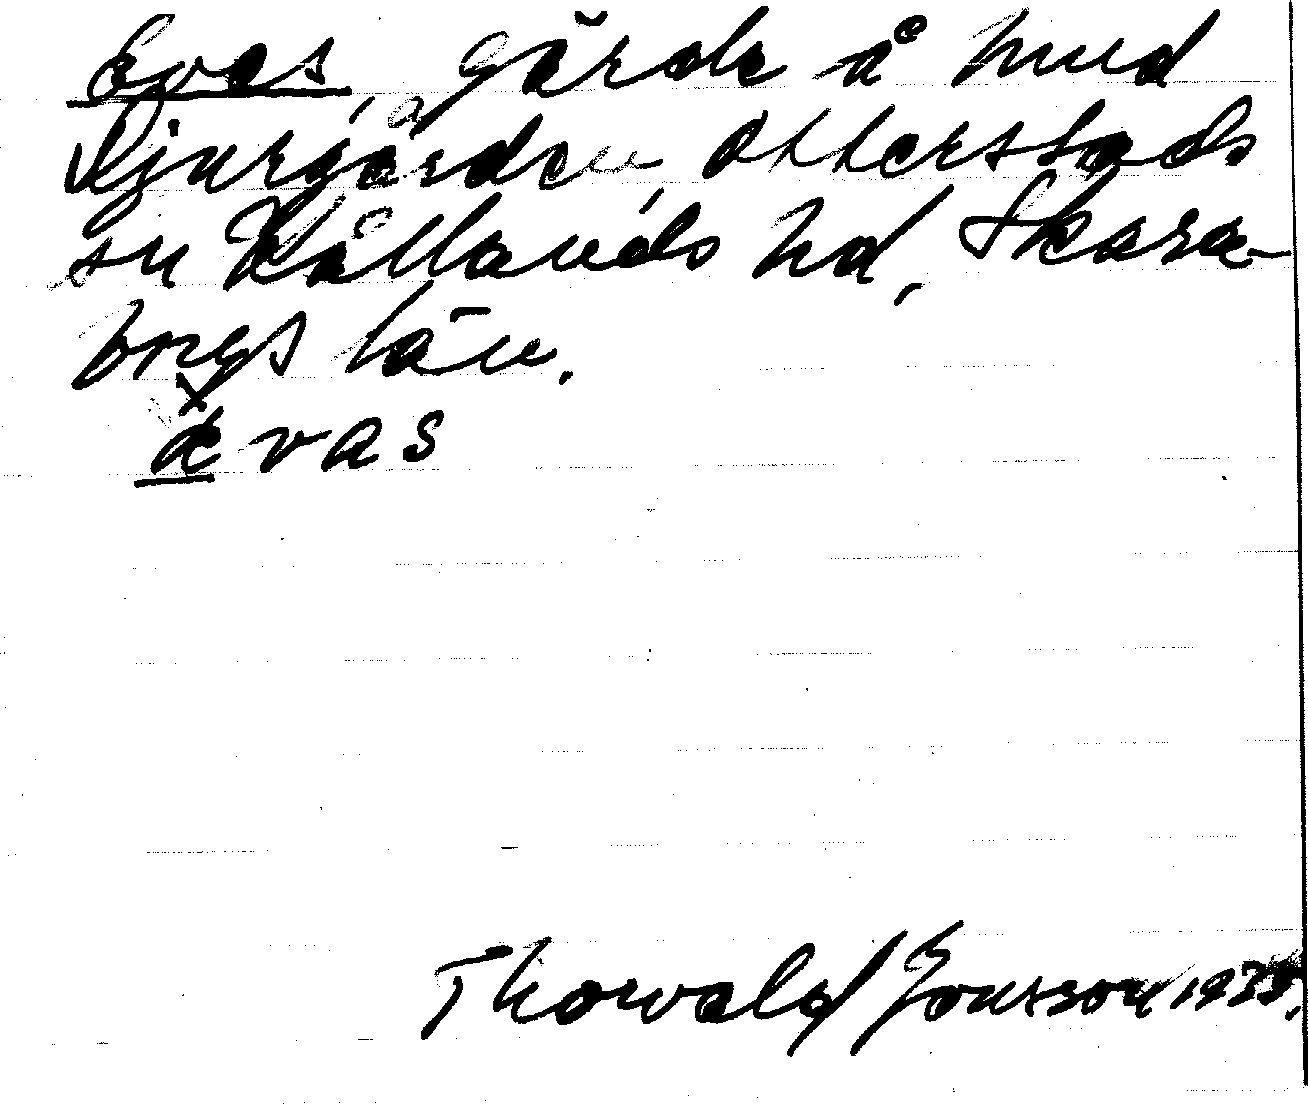 Evas, gärde å hmd
Djurgården, Otterstads
sn Kållands hd, Skara-
borgs län.
ævas
Thorvald Jonsson 1935.